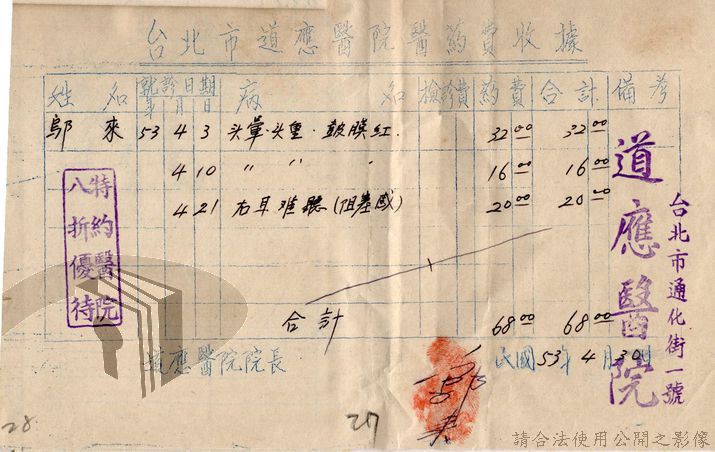 台北市道應醫院醫药費收據
姓名 就診日期 年 月 日 病名 檢診費 药費 合計 備考
鄔來 53 4 3 头暈、头重、鼓膜紅. 32.00 32.00
4 10 〃 〃 〃 16.00 16.00
4 21 右耳难聽(阻塞感) 20.00 20.00
合計 68.00 68.00
道應醫院院長
民國53年4月30日
特約醫院
八折優待
台北市通化街一號
道應醫院
28
27
請合法使用公開之影像